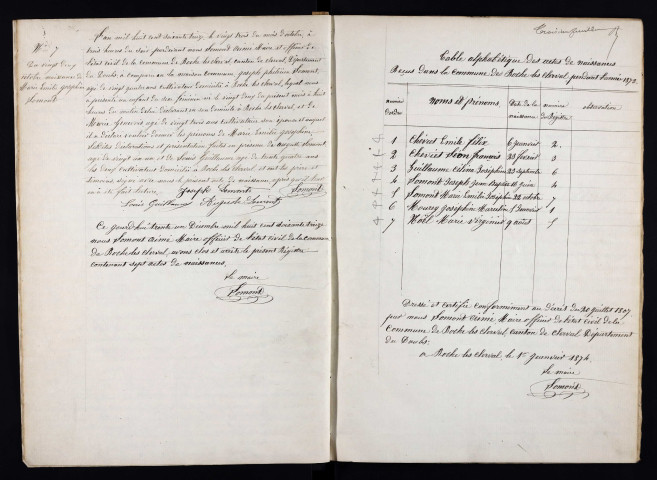 N° 7
Du vingt deux
octobre naissance de
Marie Emélie Josephine
Somont
L'an mil huit cent soixante treize le vingt trois du mois d'octobre, à
trois heures du soir pardevant nous Somont Aimé Maire et officier de
l'état civil de la commune de Roche les clerval canton de clerval, Département
du Doubs à comparu en la maison commune, Joseph Somont,
age de vingt ans cultivateur domicilié à Roche les clerval, lequel nous
a présenté un enfant du sexe féminin né le vingt deux du présent mois à huit
heures du matin de lui Déclarant en son domicile à Roche les clerval, et de
Marie age de vingt trois ans cultivatrice son épouse et auquel
il a déclaré vouloir donner les prénoms de Marie Emélie Josephine,
lesdites déclarations et présentation faites en présence de Auguste Somont
age de vingt un ans et de Louis Guillaume age de trente quatre ans
les deux cultivateurs domiciliés à Roche les clerval, et ont les père et
témoins signé avec nous le présent acte de naissance, après qu'il leur
en a été fait lecture. Joseph Somont Somont
Louis Guillaume Auguste Somont
Ce jourd'hui trente un Décembre mil huit cent soixante treize
nous Somont aimé Maire officier de l'état civil de la commune
de Roche les clerval, avons clos et arrêté le présent Registre
contenant sept actes de naissances.
Le maire
Somont
Table alphabétique des actes de naissances
Reçus Dans la Commune de Roche les clerval pendant l'année 1873
numéro d'ordre
noms et prénoms
Date de la naissance
numéro du Registre
observation
1 Emile félix 6 janvier 2
2 françois 23 février 3
3 Guillaume Célina Josephine 23 septembre 6
4 Somont Joseph Jean auguste 18 juin 4
5 Somont Marie Emélie Josephine 22 octobre 7
6 Mourey Josephin 5 janvier 1
7 Noël Marie virginie 9 août 5
Dressé et certifié conformément au Décret du 20 juillet 1807
par nous Somont aimé Maire officier de l'état civil de la
Commune de Roche les clerval, canton de Clerval Département
du Doubs.
a Roche les clerval, le 1er janvier 1874
Le maire
Somont